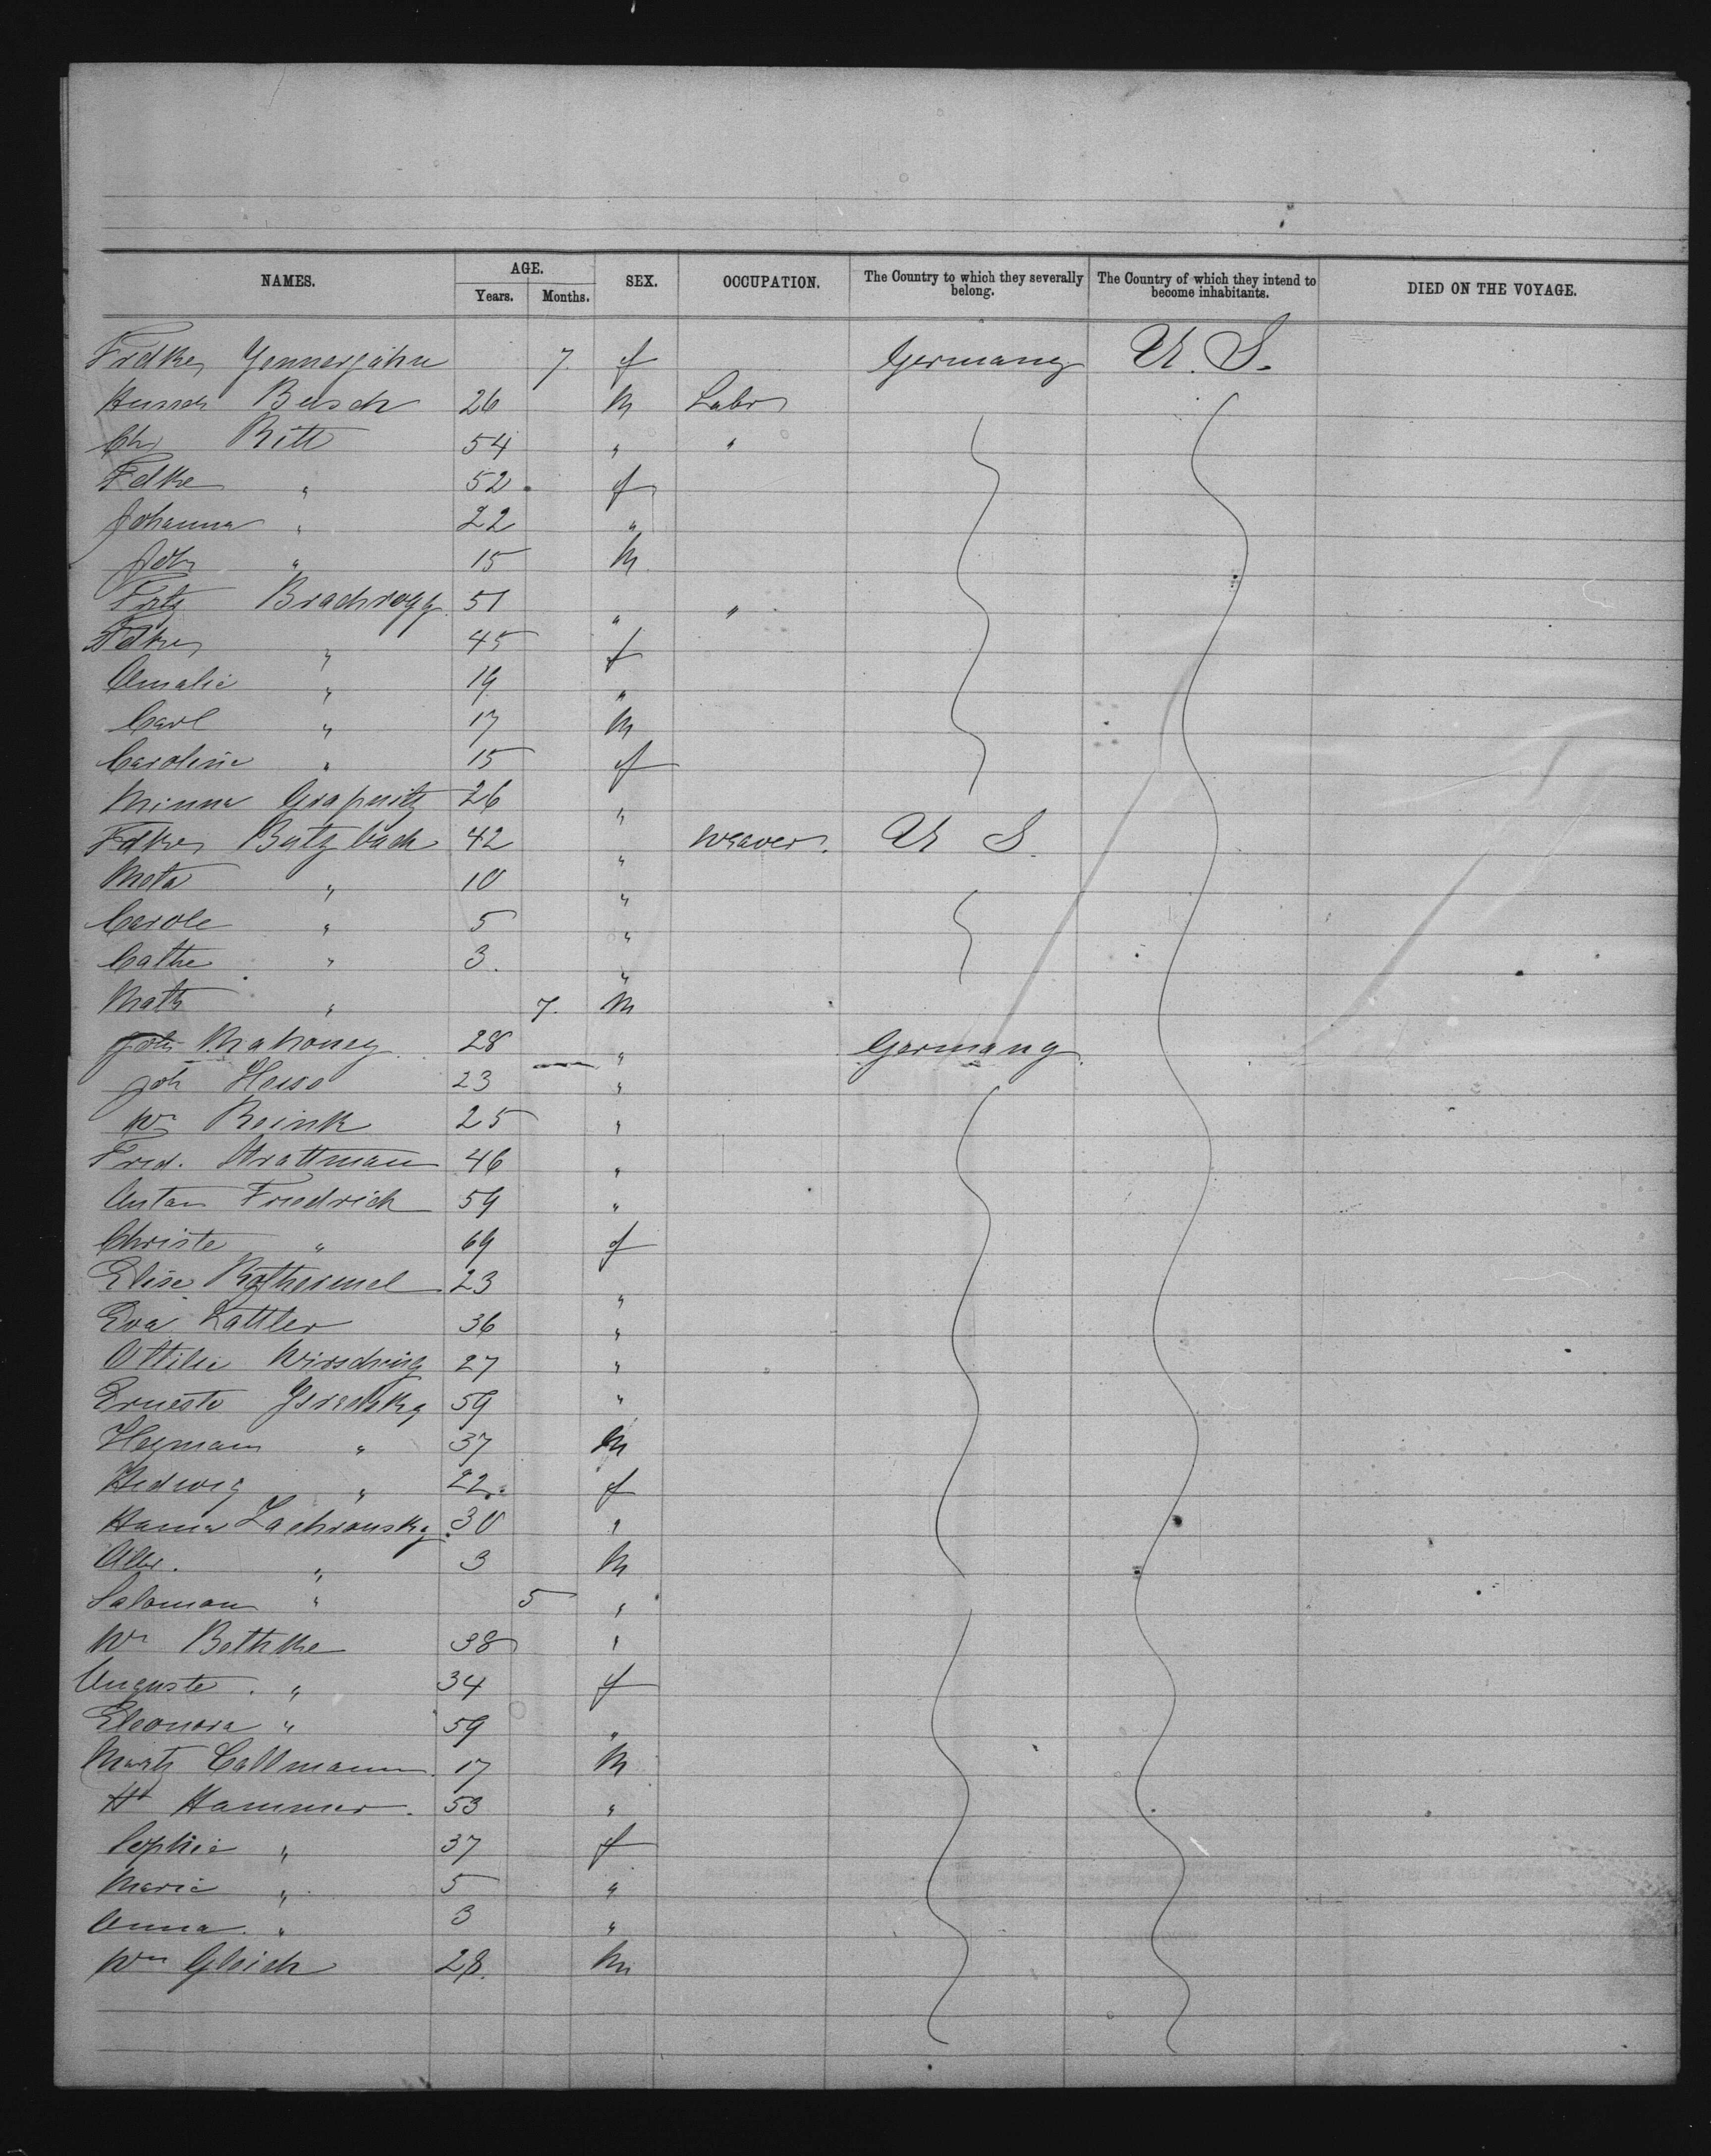 NAMES. AGE. SEX. OCCUPATION. The Country to which they severally belong. The Country of which they intend to become inhabitants. DIED ON THE VOYAGE.
Years. Months.
Fredke Jennerjahn 7. f Germany U. S.
Busch 26 M Labr
Chr Ritt 54 " "
Fdke " 52 f
Johanna " 22 "
Joh " 15 M
Fritz Brachvogg 51 " "
Fdke " 45 f
Amalie " 19 "
Carl " 17 M
Caroline " 15 f
Minna 26 "
Fdke Butzbach 42 " Weaver. U S.
Meta " 10 "
Carole " 5 "
Cathe " 3. "
Math " 7. M
Joh Mahoney 28 " Germany
Joh Heise 23 "
Wm Reink 25 "
Fred. Strattman 46 "
Anton Friedrich 59 "
Christe " 69 f
Elise Rothermel 23 "
Eva Kattler 36 "
Ottilie Wirsching 27 "
Erneste 59 "
Heymann " 37 M
Hedwig " 22 f
Hanna Zachrousky 30 "
" 3 M
Salomon " 5 "
Wm Bethke 38 "
Auguste " 34 f
Eleonora " 59 "
Moritz Callmann 17 M
Hammer 53 "
Sophie " 37 f
Marie " 5 "
Anna " 3 "
Wm Gleich 28. M